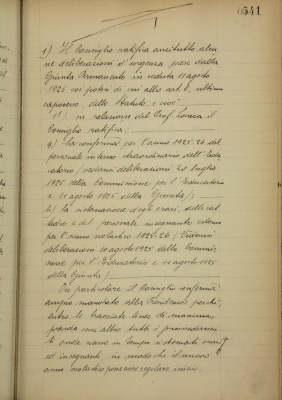 0541
1) Il Consiglio ratifica anzitutto alcu-
ne deliberazioni d'urgenza prese dalla
Giunta Permanente in seduta 11 agosto
1925 coi poteri di cui all'art. 8, ultimo
capoverso dello Statuto, e cioè:
1°) in relazione del Prof. il
Consiglio ratifica:
a) la conferma per l'anno 1925-26 del
personale interno straordinario dell'Edu-
catorio (vedansi deliberazioni 20 luglio
1925 della Commissione per l'Educatorio
e 11 agosto 1925 della Giunta);
b) la sistemazione degli orari, delle cat-
tedre e del personale insegnante esterno
per l'anno scolastico 1925-26 (Vedansi
deliberazioni 10 agosto 1925 della Commis-
sione per l'Educatorio e 11 agosto 1925
della Giunta)
In particolare il Consiglio conferma
ampio mandato alla Presidenza perché,
entro le tracciate linee di massima,
prenda con altro tutti i provvedimen-
ti onde siano in tempo sistemati orari
ed insegnanti, in modo che il nuovo
anno scolastico possa avere regolare inizio.